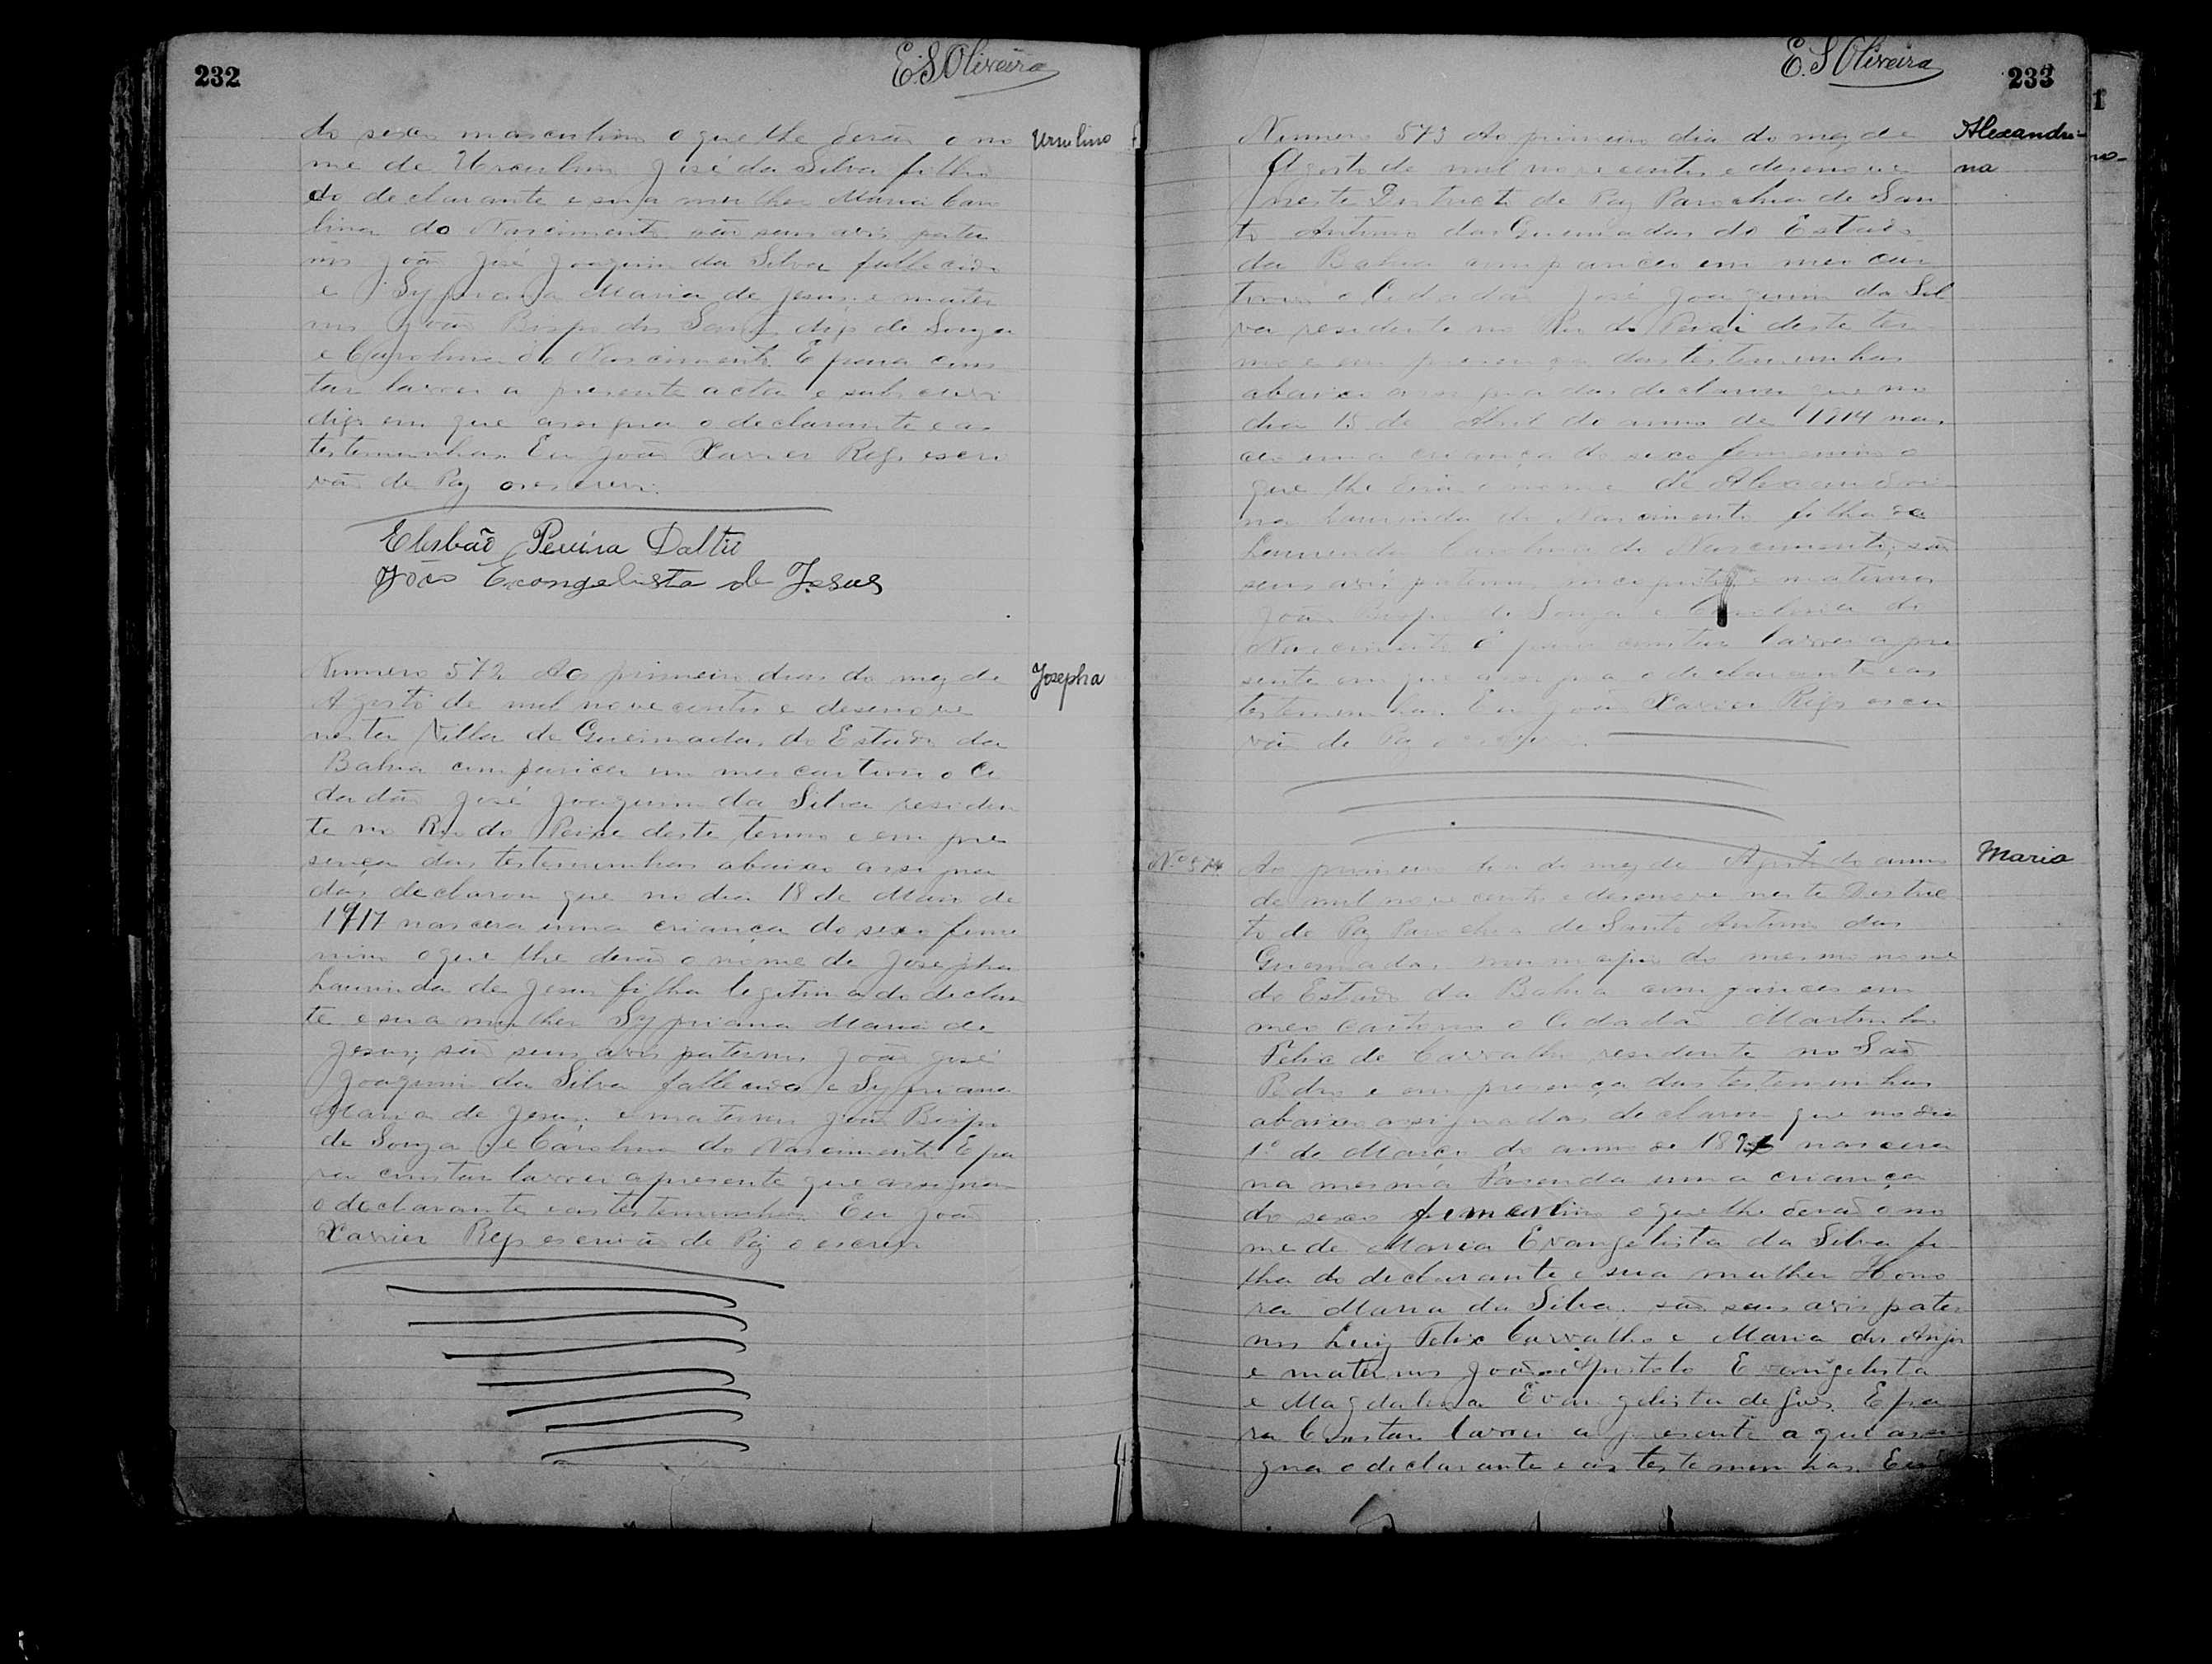 232
E. S Oliveira
do sexo masculino o que lhe derão o no
Ursulino
me de Urculino José da Silva filho
do declarante e sua mulher Maria Caro
lina do Nascimento são seus avós pater
nos João José Joaquim da Silva fallecido
e Sypriana Maria de Jesus e mater
nos João Bispo dos Santos digo de Souza
e Carolina do Nascimento E para cons
tar lavrei a presente acta e subscrevi
digo em que assigna o declarante e as
testemunhas. Eu João Xavier Rego escri
vão de Paz o escrevi.
Elesbão Pereira Daltro
João Evangelista de Jesus
Numero 572 Aos primeiro dias do mez de
Josepha
Agosto de mil nove centos e desenove
nesta Villa de Queimadas do Estado da
Bahia compareceu em meu cartorio o Ci
dadão José Joaquim da Silva residen
te no Rio do Peixe deste termo e em pre
sença das testemunhas abaixo assigna
das declarou que no dia 18 de Maio de
1917 nascera uma criança do sexo femi
nino o que lhe derão o nome de Josepha
Laurinda de Jesus filha legitima do declaran
te e sua mulher Sypriana Maria de
Jesus; são seus avós paternos João José
Joaquim da Silva fallecido e Sypriana
Maria de Jesus; e maternos João Bispo
de Souza e Carolina do Nascimento E pa
ra constar lavrei a presente que assigna
o declarante e as testemunhas Eu João
Xavier Rego escrivão de Paz o escrevi
E. S Oliveira
233
Numero 573 Ao primeiro dia do mez de
Alexandri-
Agosto de mil nove centos e desenove
na
neste Districto de Paz Parochia de San
to Antonio das Queimadas do Estado
da Bahia compareceu em meu car
torio o Cidadão José Joaquim da Sil
va residente no Rio do Peixe deste ter
mo e em presença das testemunhas
abaixo assignadas declarou que no
dia 15 de Abril do anno de 1914 nas
ceo uma criança do sexo femenino o
que lhe derão o nome de Alexandri
na Laurinda do Nascimento filha de
Laurinda Carolina do Nascimento; são
seus avós paternos e maternos
João Bispo de Souza e Carolina do
Nascimento E para constar lavrei a pre
sente em que assigna o declarante e as
testemunhas. Eu João Xavier Rego escri
vão de Paz o escrevi.
Nº 574
Ao primeiro dia do mez de Agosto do anno
Maria
de mil nove centos e desenove neste Distric
to de Paz Parochia de Santo Antonio das
Queimadas, municipio do mesmo nome
do Estado da Bahia compareceu em
meu cartorio o Cidadão Martinho
Felix de Carvalho residente no São
Pedro e em presença das testemunhas
abaixo assignadas declarou que no dia
1º de Março do anno de nascera
na mesma Fasenda uma criança
do sexo femenino o que lhe derão o no
me de Maria Evangelista da Silva fi
lha do declarante e sua mulher Hono
ra Maria da Silva; são seus avós pater
nos Luiz Felix Carvalho e Maria dos Anjos
e maternos João Apostolo Evangelista
e Magdalena Evangelista de E pa
ra Constar lavrei a presente a qual assi
gna o declarante e as testemunhas. Eu